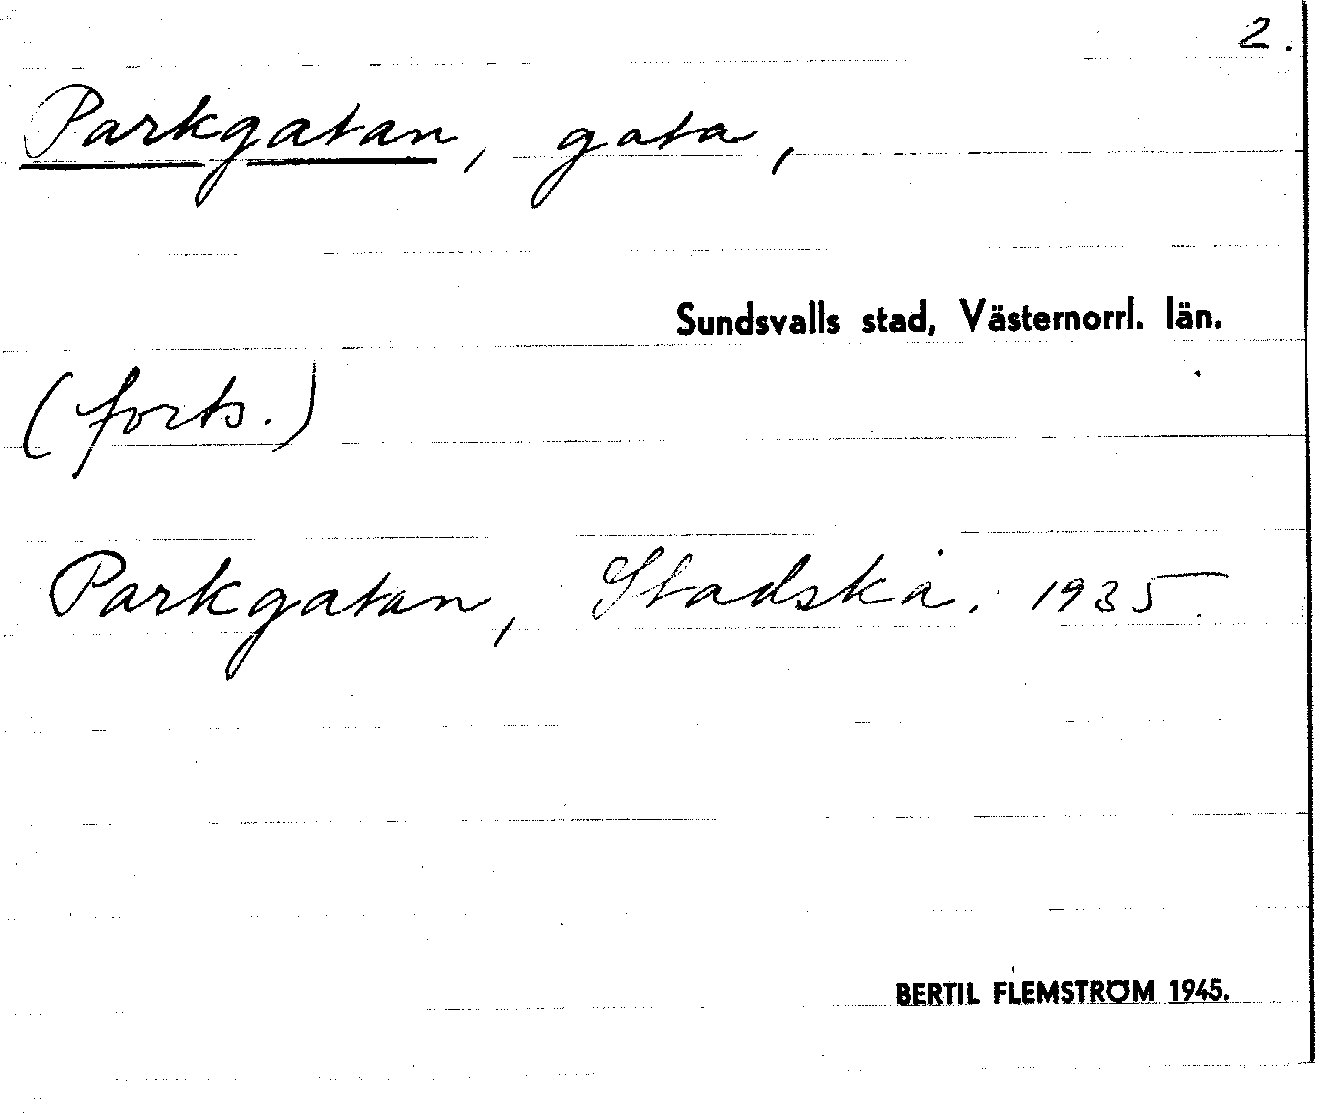 2.
Parkgatan, gata,
Sundsvalls stad, Västernorrl. län.
(forts.)
Parkgatan, Stadska. 1935.
BERTIL FLEMSTRÖM 1945.